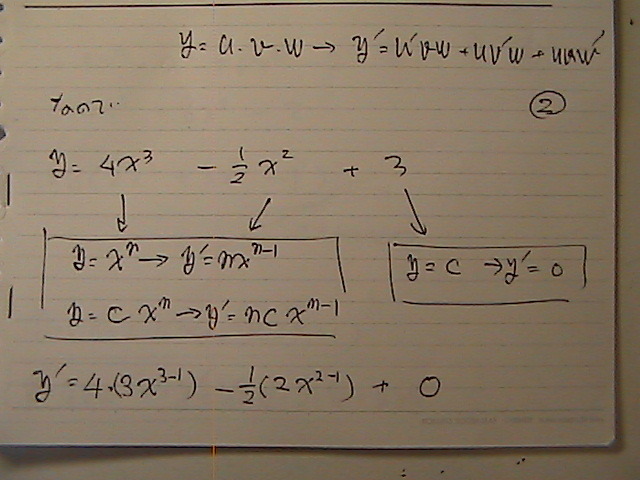 y = u . v . w → y' = u'vw + uv'w + uvw'
②
y = 4x³ - 1/2 x² + 3
y = xⁿ → y' = nxⁿ⁻¹
y = c → y' = 0
y = c xⁿ → y' = nc xⁿ⁻¹
y' = 4.(3x³⁻¹) - 1/2(2x²⁻¹) + 0